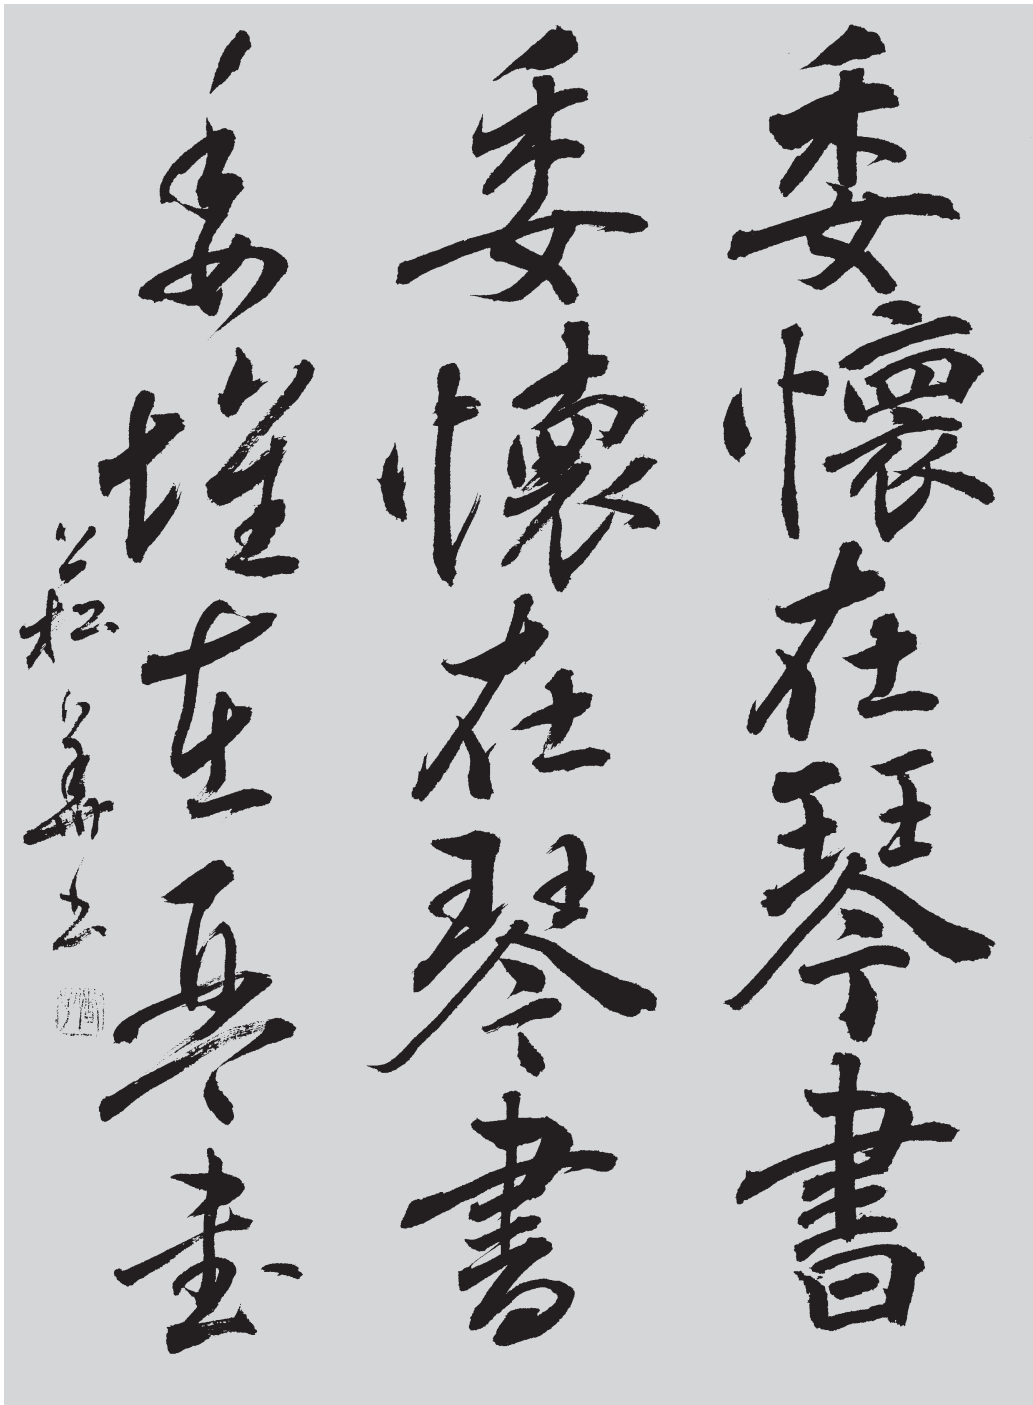 委懷在琴書
委懷在琴書
委懷在琴書